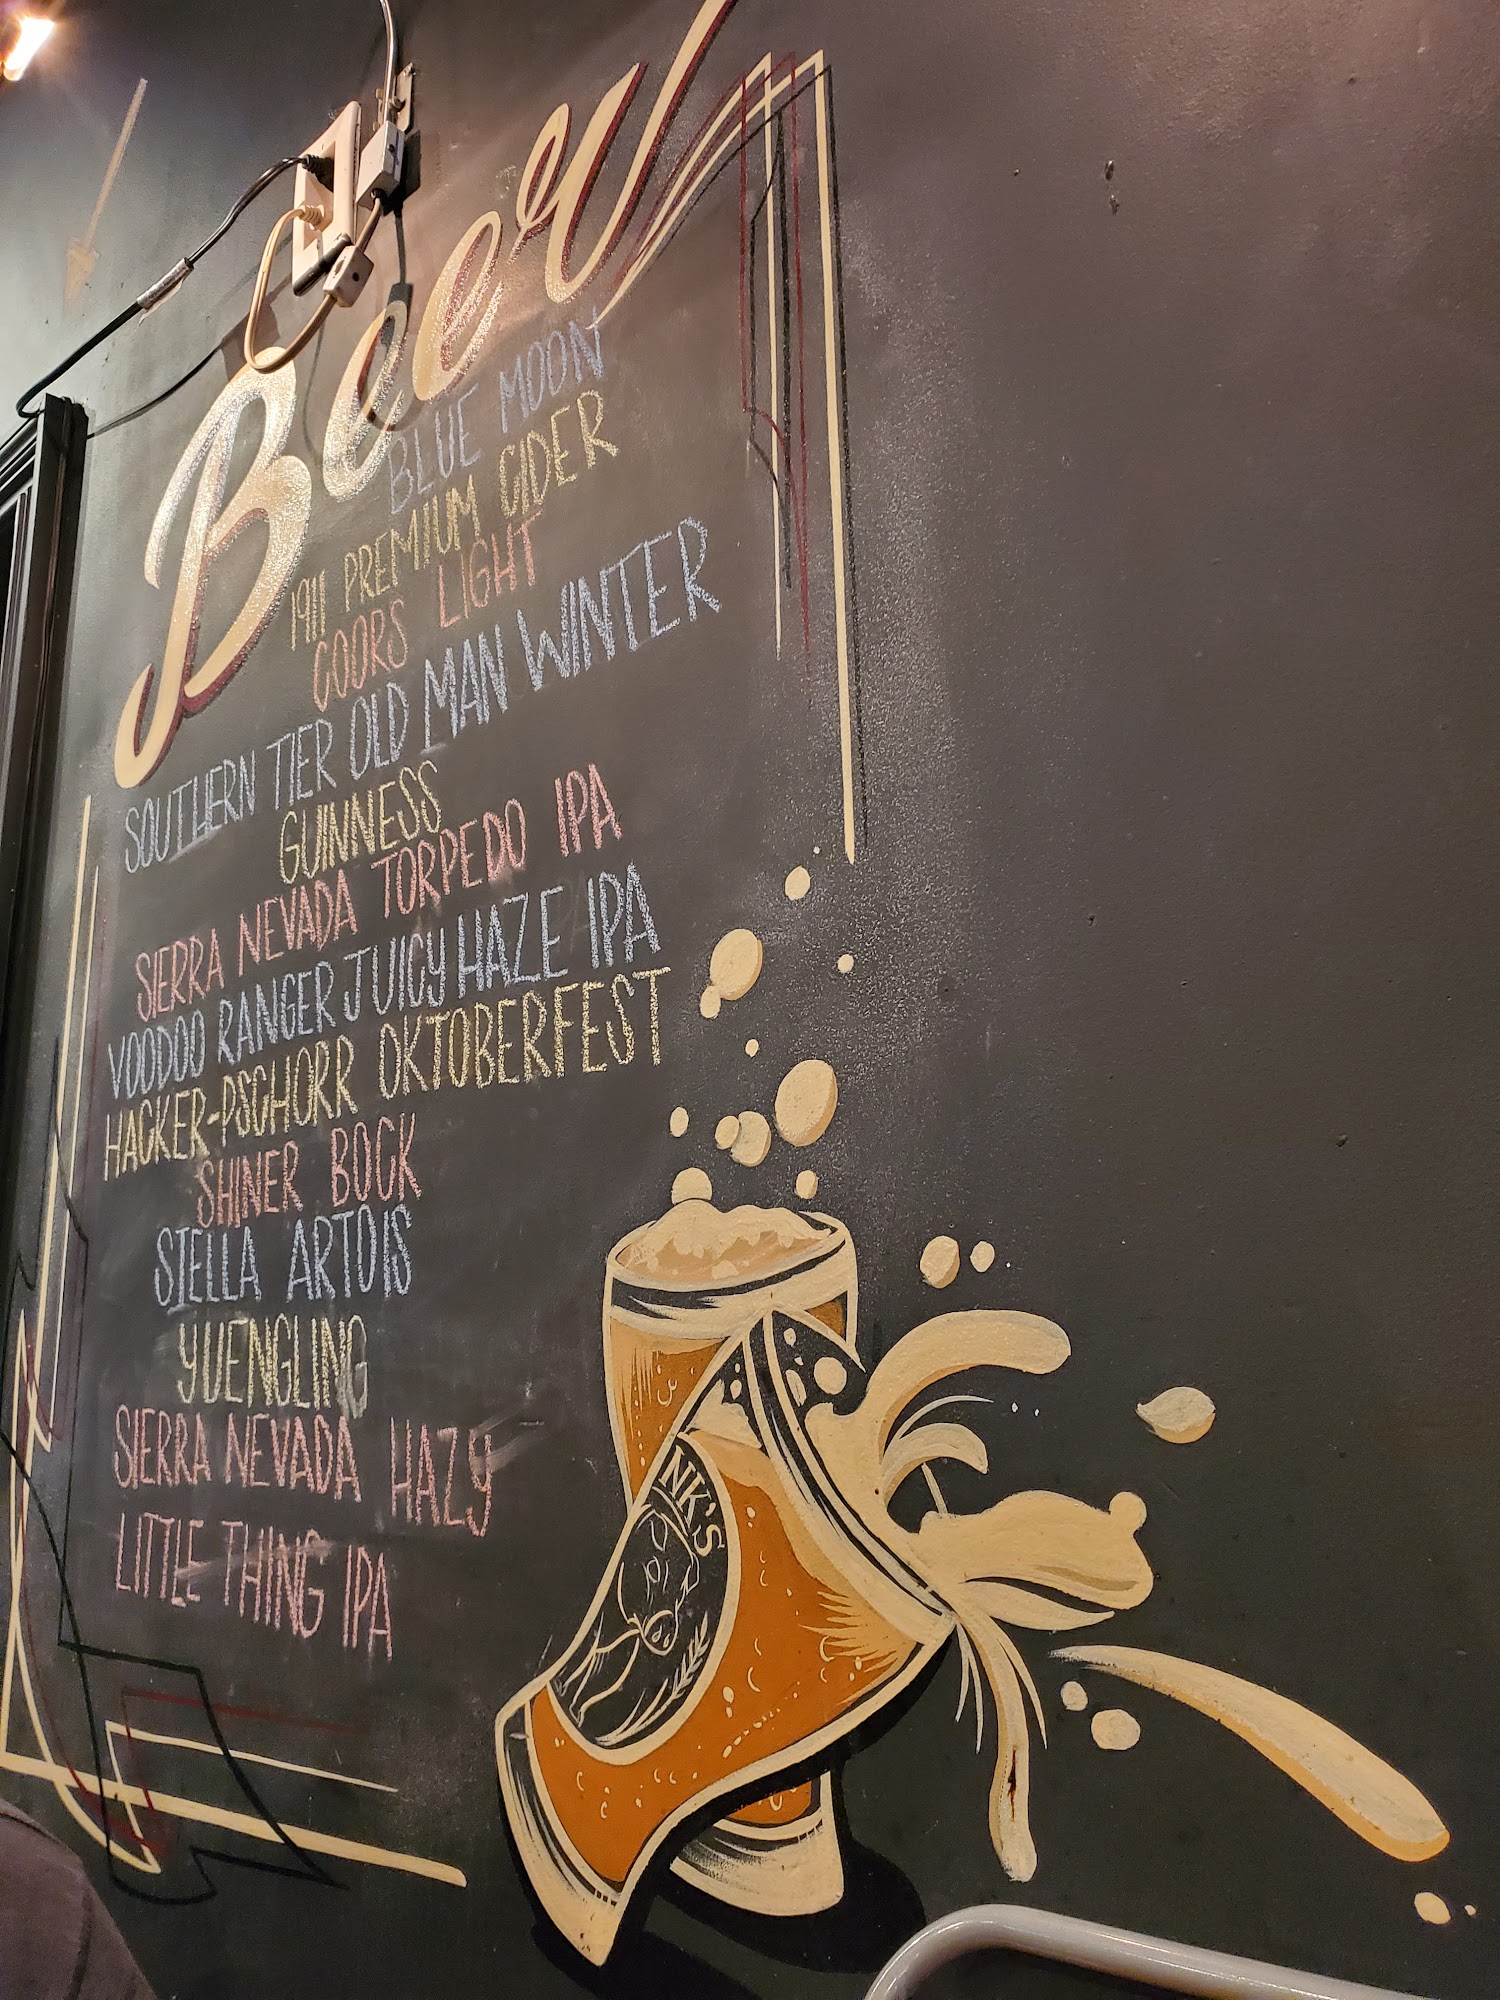 Beer
BLUE MOON
1911 PREMIUM CIDER
COORS LIGHT
SOUTHERN TIER OLD MAN WINTER
GUINNESS
SIERRA NEVADA TORPEDO IPA
VOODOO RANGER JUICY HAZE IPA
HACKER-PSCHORR OKTOBERFEST
SHINER BOCK
STELLA ARTOIS
YUENGLING
SIERRA NEVADA HAZY
LITTLE THING IPA
NK'S